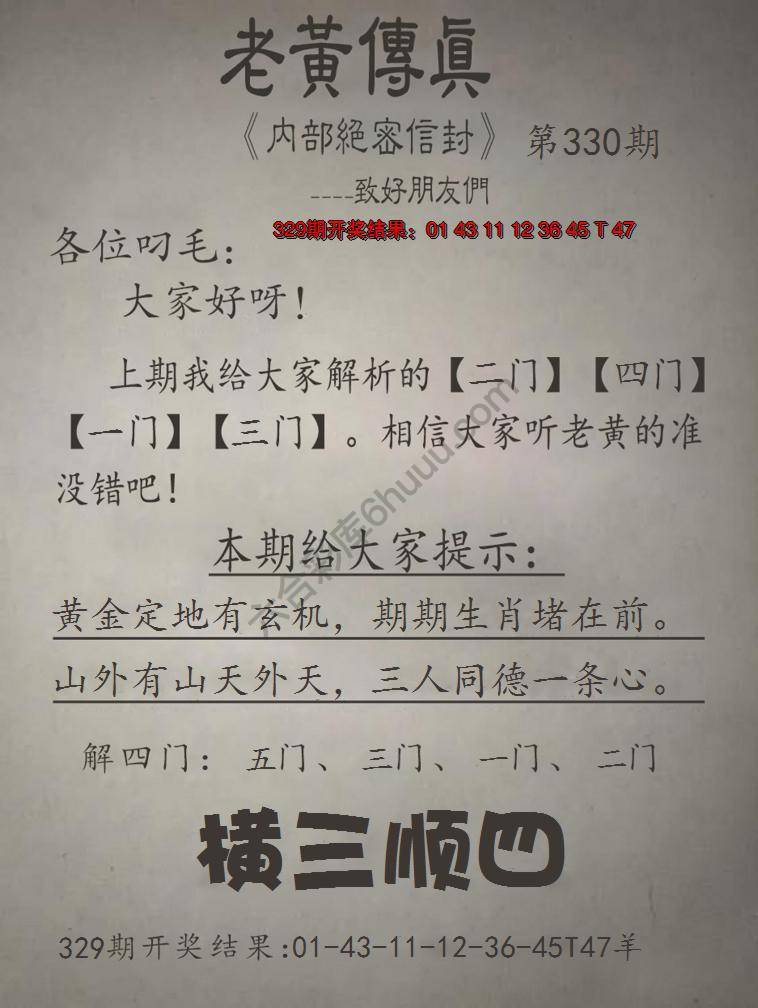 老黃傳眞
《内部絕密信封》 第330期
----致好朋友們
329期开奖结果：01 43 11 12 36 45 T 47
各位叼毛：
大家好呀！
上期我给大家解析的【二门】【四门】
【一门】【三门】。相信大家听老黄的准
没错吧！
六合彩库6huuu.com
本期给大家提示：
黄金定地有玄机，期期生肖堵在前。
山外有山天外天，三人同德一条心。
解四门： 五门、 三门、 一门、 二门
横三顺四
329期开奖结果:01-43-11-12-36-45T47羊